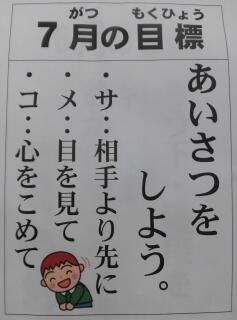 がつ もくひょう
7月の目標
あいさつを
しよう。
・サ‥相手より先に
・メ‥目を見て
・コ‥心をこめて